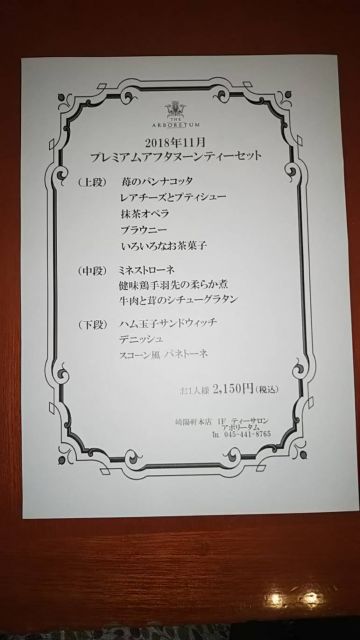 THE
ARBORETUM
2018年11月
プレミアムアフタヌーンティーセット
(上段) 苺のパンナコッタ
レアチーズとプティシュー
抹茶オペラ
ブラウニー
いろいろなお茶菓子
(中段) ミネストローネ
健味鶏手羽先の柔らか煮
牛肉と茸のシチューグラタン
(下段) ハム玉子サンドウィッチ
デニッシュ
スコーン風 パネトーネ
お1人様 2,150円(税込)
崎陽軒本店 1F ティーサロン
アボリータム
℡ 045-441-8765